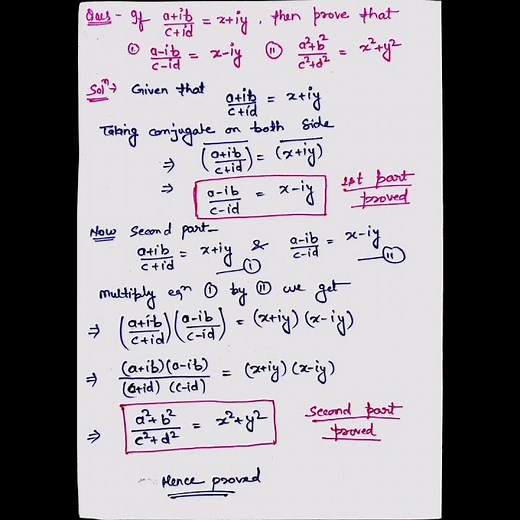 Ques - If (a+ib)/(c+id) = x+iy, then prove that
(i) (a-ib)/(c-id) = x-iy (ii) (a²+b²)/(c²+d²) = x²+y²
Solⁿ → Given that (a+ib)/(c+id) = x+iy
Taking conjugate on both side
⇒ \overline{((a+ib)/(c+id))} = \overline{(x+iy)}
⇒ (a-ib)/(c-id) = x-iy 1st part proved
Now Second part-
(a+ib)/(c+id) = x+iy —(I) & (a-ib)/(c-id) = x-iy —(II)
Multiply eqⁿ (I) by (II) we get
⇒ ((a+ib)/(c+id)) ((a-ib)/(c-id)) = (x+iy)(x-iy)
⇒ (a+ib)(a-ib)/(c+id)(c-id) = (x+iy)(x-iy)
⇒ (a²+b²)/(c²+d²) = x²+y² Second part proved
Hence proved